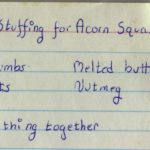 Stuffing for Acorn Squa
Melted butt
Nutmeg
thing together